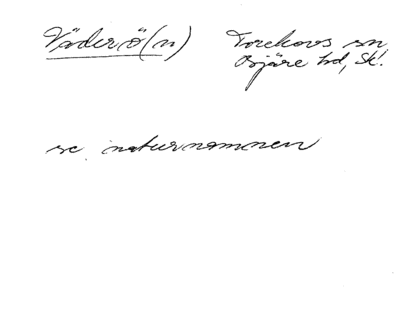 Väderö(n) Torekovs sn,
Bjäre hd, Sk.
se naturnamnen